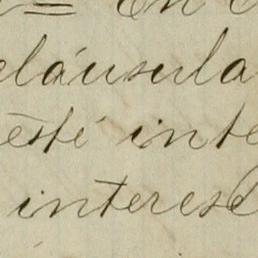 = En
cláusula
esté inte
interese